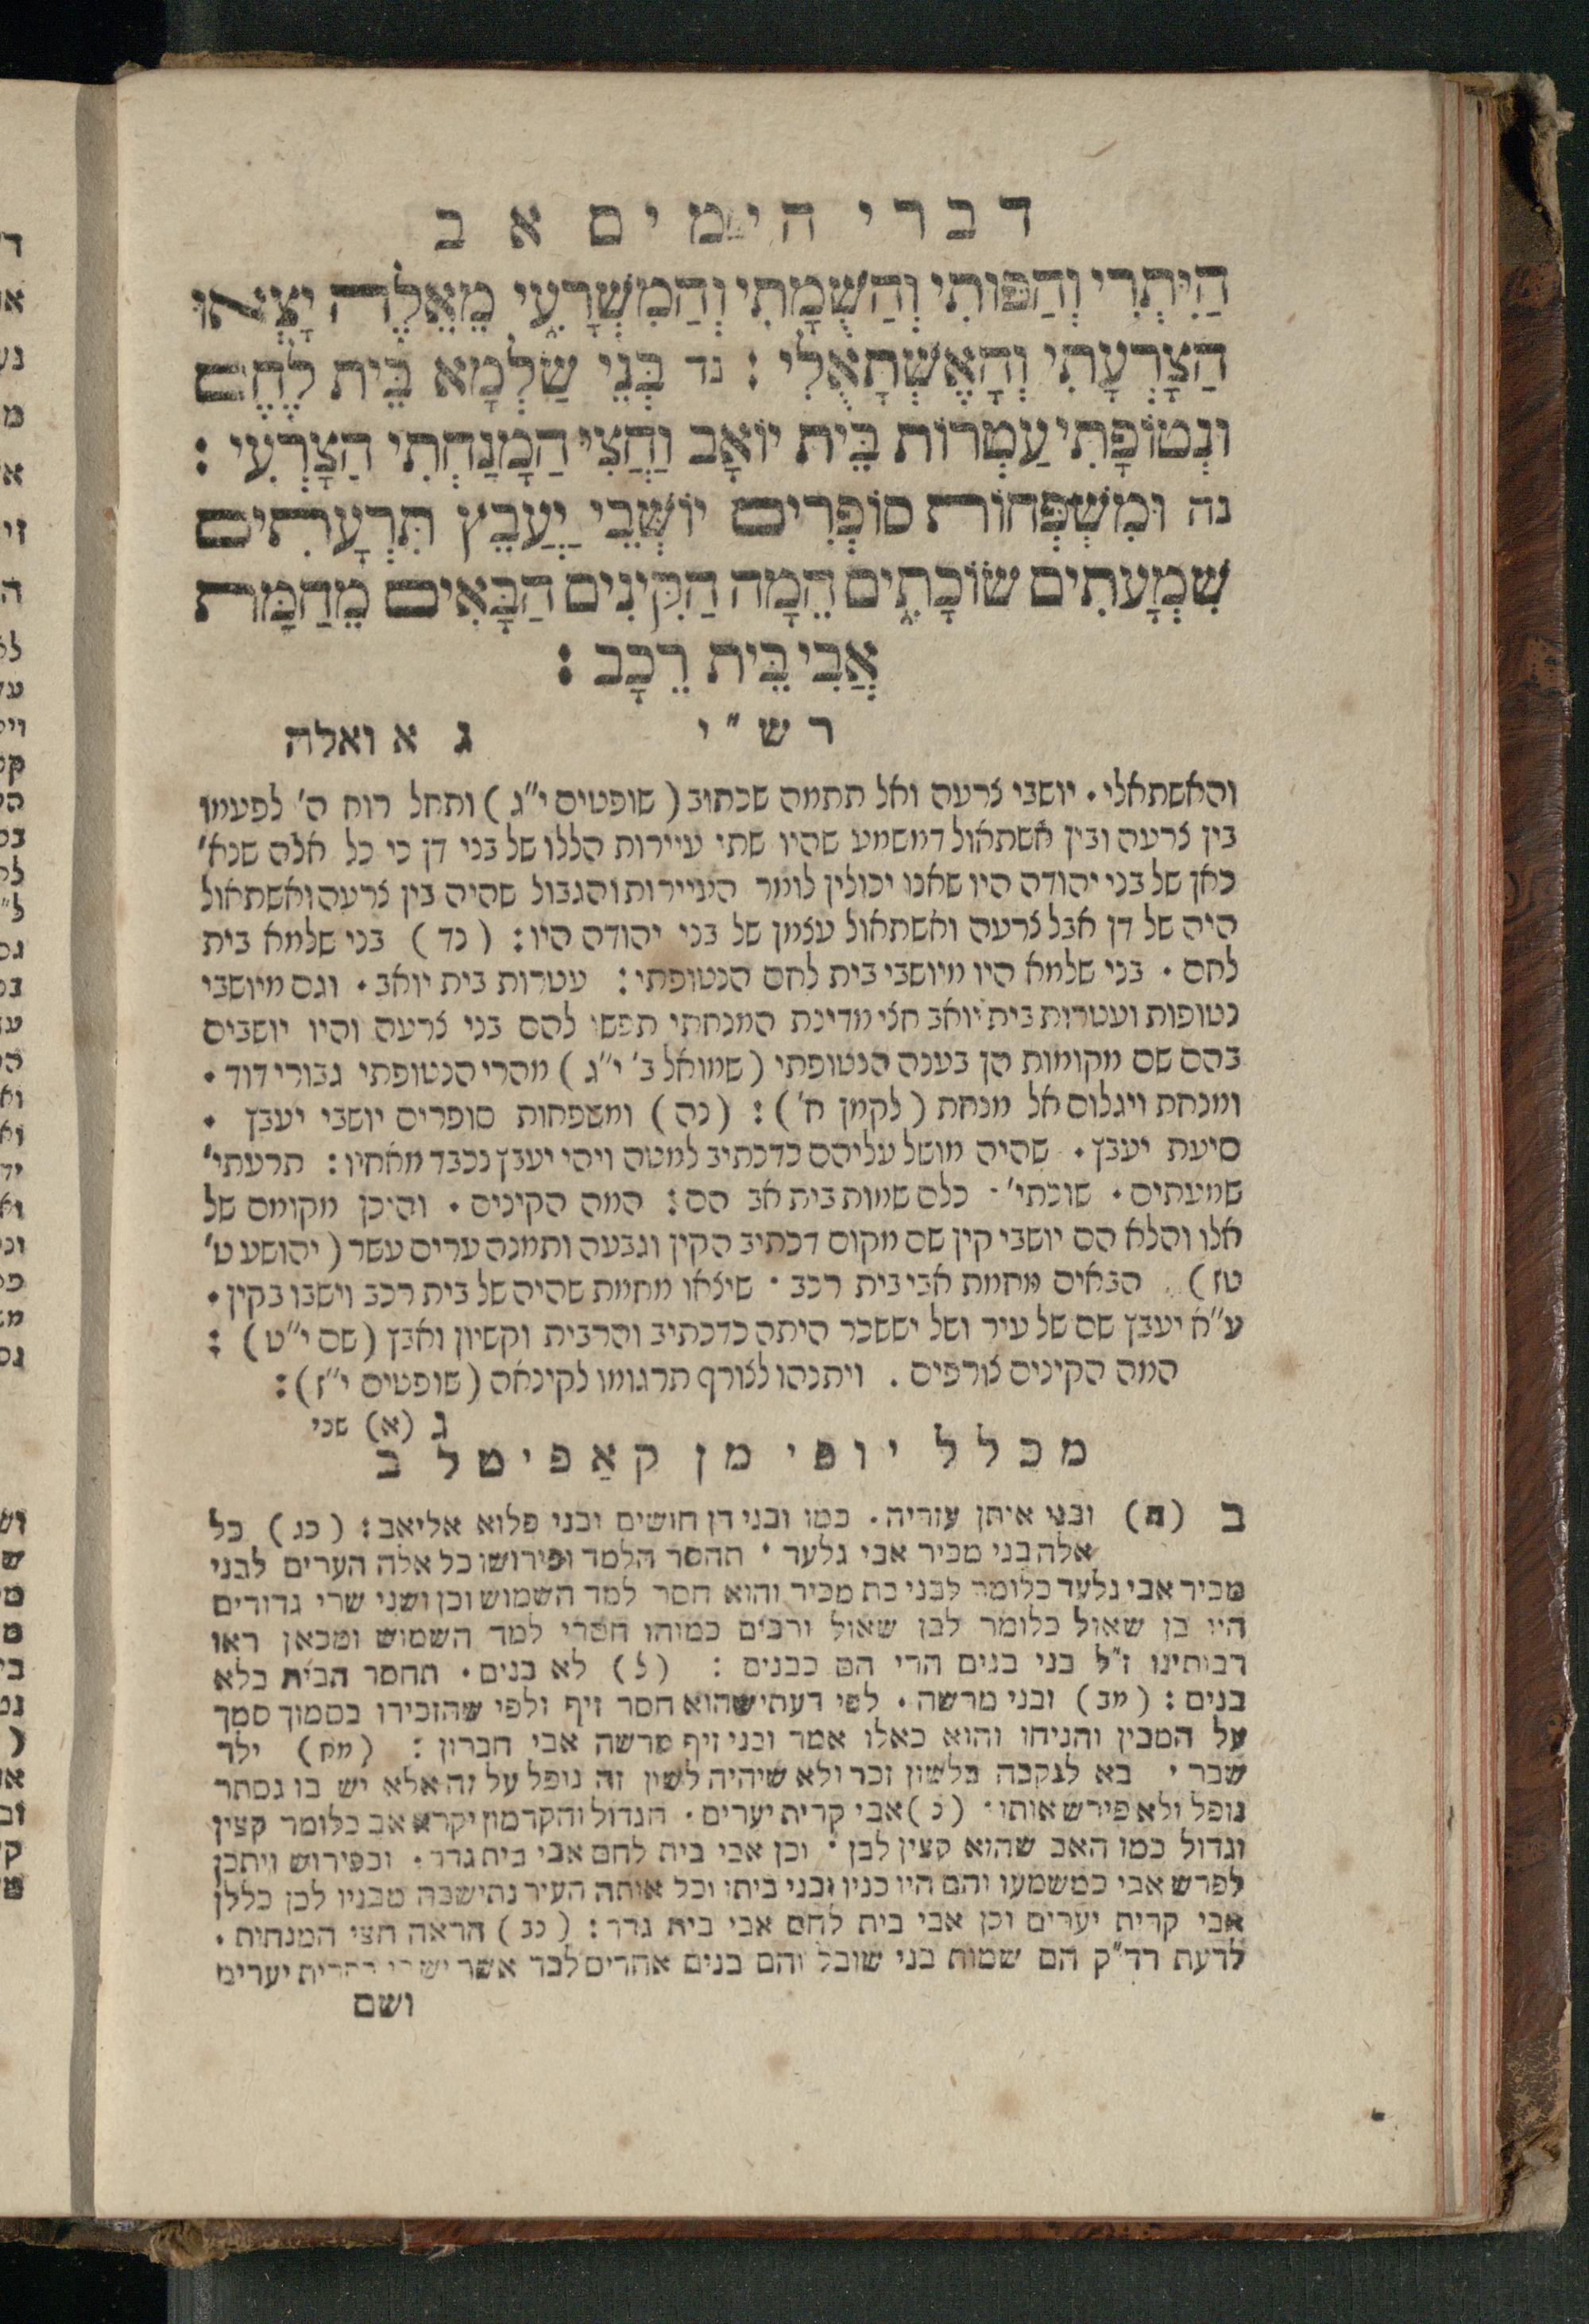 דברי הימים א ב
הַיִּתְרִי וְהַפּוּתִי וְהַשֻּׁמָתִי וְהַמִּשְׁרָעִי מֵאֵלֶּה יָצְאוּ
הַצָּרְעָתִי וְהָאֶשְׁתָּאֻלִי : נד בְּנֵי שַׂלְמָא בֵּית לֶחֶם
וּנְטוֹפָתִי עַטְרוֹת בֵּית יוֹאָב וַחֲצִי הַמָּנַחְתִּי הַצָּרְעִי :
נה וּמִשְׁפְּחוֹת סוֹפְרִים יוֹשְׁבֵי יַעְבֵּץ תִּרְעָתִים
שִׁמְעָתִים שׂוֹכָתִים הֵמָּה הַקִּינִים הַבָּאִים מֵחַמַּת
אֲבִי בֵּית רֵכָב :
רש"י
ג א ואלה
והאשתאלי . יושבי צרעה ואל תתמה שכתוב ( שופטים י"ג ) ותחל רוח ה' לפעמו
בין צרעה ובין אשתאול דמשמע שהיו שתי עיירות הללו של בני דן כי כל אלה שנא'
כאן של בני יהודה היו שאנו יכולין לומר העיירות והגבול שהיה בין צרעה ואשתאול
היה של דן אבל צרעה ואשתאול עצמן של בני יהודה היו : ( נד ) בני שלמא בית
לחם . בני שלמא היו מיושבי בית לחם הנטופתי : עטרות בית יואב . וגם מיושבי
נטופות ועטרות בית יואב חצי מדינת המנחתי תפשו להם בני צרעה והיו יושבים
בהם שם מקומות הן בענה הנטופתי ( שמואל ב' י"ג ) מהרי הנטופתי גבורי דוד .
ומנחת ויגלום אל מנחת ( לקמן ח' ) : ( נה ) ומשפחות סופרים יושבי יעבץ .
סיעת יעבץ . שהיה מושל עליהם כדכתיב למטה ויהי יעבץ נכבד מאחיו : תרעתי'
שמעתים . שוכתי' . כלם שמות בית אב הם : המה הקינים . והיכן מקומם של
אלו והלא הם יושבי קין שם מקום דכתיב הקין וגבעה ותמנה ערים עשר ( יהושע ט'
טז ) . הבאים מחמת אבי בית רכב . שיצאו מחמת שהיה של בית רכב וישבו בקין .
ע"א יעבץ שם של עיר ושל יששכר היתה כדכתיב והרבית וקשיון ואבץ ( שם י"ט ) :
המה הקינים צורפים . ויתנהו לצורף תרגומו לקינאה ( שופטים י"ז ) :
ג (א) שני
מכלל יופי מן קאַפיטל ב
ב (ח) ובני איתן עזריה . כמו ובני דן חושים ובני פלוא אליאב : ( כג ) כל
אלה בני מכיר אבי גלעד . תחסר הלמד ופירושו כל אלה הערים לבני
מכיר אבי גלעד כלומר לבני בת מכיר והוא חסר למד השמוש וכן ושני שרי גדודים
היו בן שאול כלומר לבן שאול ורבים כמוהו חסרי למד השמוש ומכאן ראו
רבותינו ז"ל בני בנים הרי הם כבנים : ( ל ) לא בנים . תחסר הבית בלא
בנים : ( מב ) ובני מרשה . לפי דעתי שהוא חסר זיף ולפי שהזכירו בסמוך סמך
על המבין והניחו והוא כאלו אמר ובני זיף מרשה אבי חברון : ( מח ) ילד
שבר . בא לנקבה בלשון זכר ולא שיהיה לשון זה נופל על זה אלא יש בו נסתר
נופל ולא פירש אותו . ( נ ) אבי קרית יערים . הגדול והקדמון יקרא אב כלומר קצין
וגדול כמו האב שהוא קצין לבן . וכן אבי בית לחם אבי בית גדר . ובפירוש ויתכן
לפרש אבי כמשמעו והם היו בניו ובני ביתו וכל אותה העיר נתישבה מבניו לכן כללן
אבי קרית יערים וכן אבי בית לחם אבי בית גדר : ( נב ) הראה חצי המנחות .
לדעת רד"ק הם שמות בני שובל והם בנים אחרים לבד אשר ישבו בקרית יערים
ושם